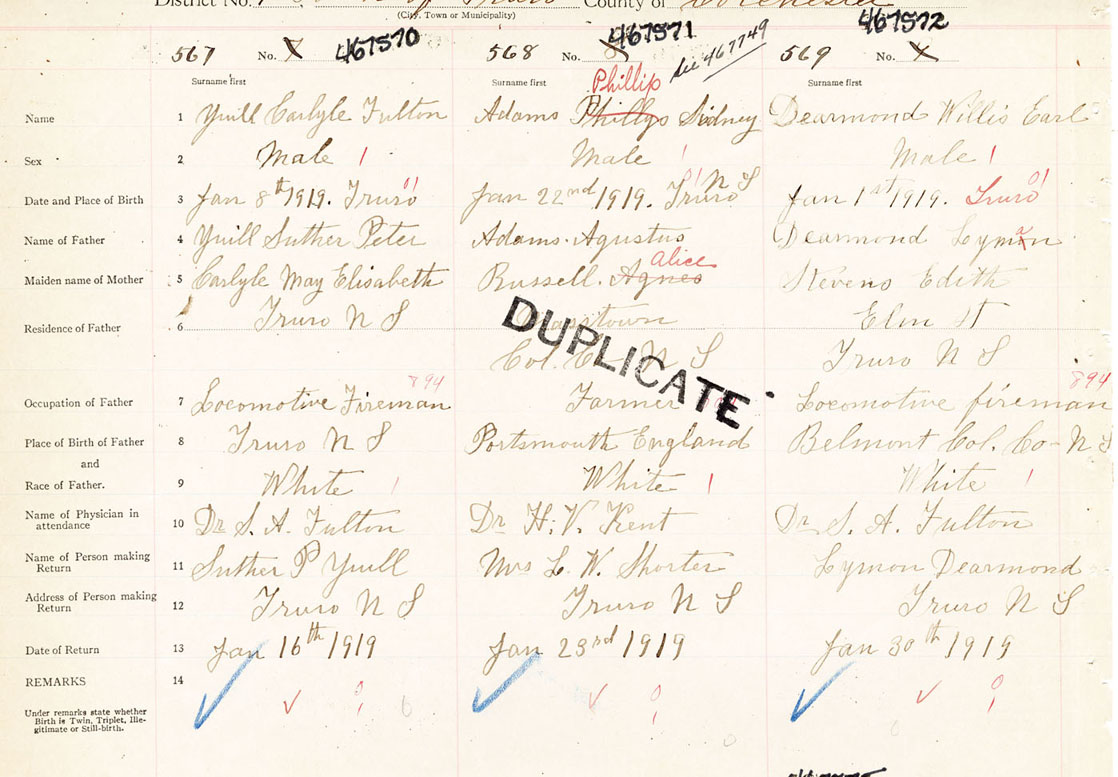 District No. Truro County of Colchester
(City, Town or Municipality)
567 No. 7 467570 568 No. 8 467571 see 467749 569 No. 467572
Surname first Surname first Phillip Surname first
Name 1 Yuill Carlyle Fulton Adams Phillys Sidney Dearmond Willis Earl
Sex 2 Male 1 Male 1 Male 1
Date and Place of Birth 3 Jan 8th 1919. Truro Jan 22nd 1919. Truro N S Jan 1st 1919. Truro
Name of Father 4 Yuill Suther Peter Adams. Agustus Dearmond Lyman
Maiden name of Mother 5 Carlyle May Elisabeth Russell. Agnes Alice Stevens Edith
Residence of Father 6 Truro N S Elm St
Col. Co N S Truro N S
DUPLICATE
894 894
Occupation of Father 7 Locomotive Fireman Farmer Locomotive fireman
Place of Birth of Father 8 Truro N S Portsmouth England Belmont Col. Co- N S
and
Race of Father. 9 White 1 White 1 White 1
Name of Physician in
attendance 10 Dr S. A. Fulton Dr H. V. Kent Dr S. A. Fulton
Name of Person making
Return 11 Suther P Yuill Mrs L. W. Shorter Lymon Dearmond
Address of Person making
Return 12 Truro N S Truro N S Truro N S
Date of Return 13 Jan 16th 1919 Jan 23rd 1919 Jan 30th 1919
REMARKS 14
Under remarks state whether
Birth is Twin, Triplet, Ille-
gitimate or Still-birth.